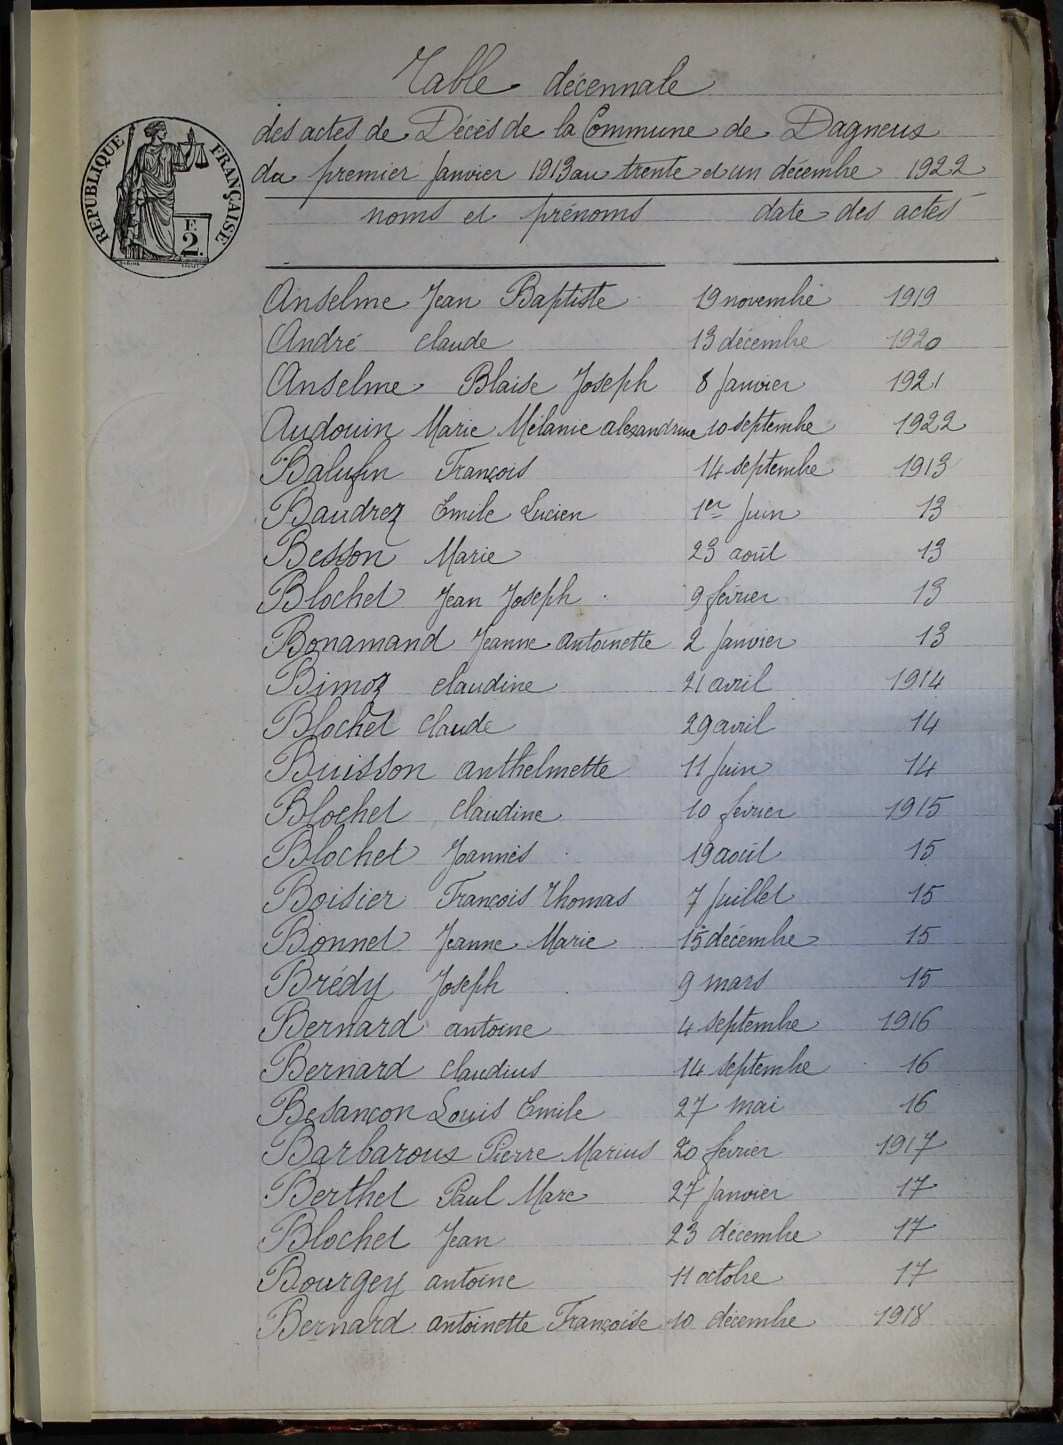 Table décennale
des actes de Décès de la Commune de Dagneux
du premier Janvier 1913 au trente et un décembre 1922
noms et prénoms date des actes
RÉPUBLIQUE FRANÇAISE
F
2.
Anselme Jean Baptiste 19 novembre 1919
André Claude 13 décembre 1920
Anselme Blaise Joseph 8 Janvier 1921
Audouin Marie Mélanie alexandrine 10 septembre 1922
François 14 septembre 1913
Baudrez Emile Lucien 1er Juin 13
Besson Marie 23 août 13
Blochet Jean Joseph 9 février 13
Bonamand Jeanne antoinette 2 Janvier 13
Bimoz claudine 21 avril 1914
Blochet Claude 29 avril 14
Buisson anthelmette 11 Juin 14
Blochet Claudine 10 février 1915
Blochet Joannès 19 août 15
Boisier François Thomas 7 Juillet 15
Bonnet Jeanne Marie 15 décembre 15
Brédy Joseph 9 mars 15
Bernard antoine 4 septembre 1916
Bernard Claudius 14 septembre 16
Besançon Louis Emile 27 mai 16
Barbaroux Pierre Marius 20 février 1917
Berthet Paul Marc 27 Janvier 17
Blochet Jean 23 décembre 17
Bourgey antoine 11 octobre 17
Bernard antoinette Françoise 10 décembre 1918